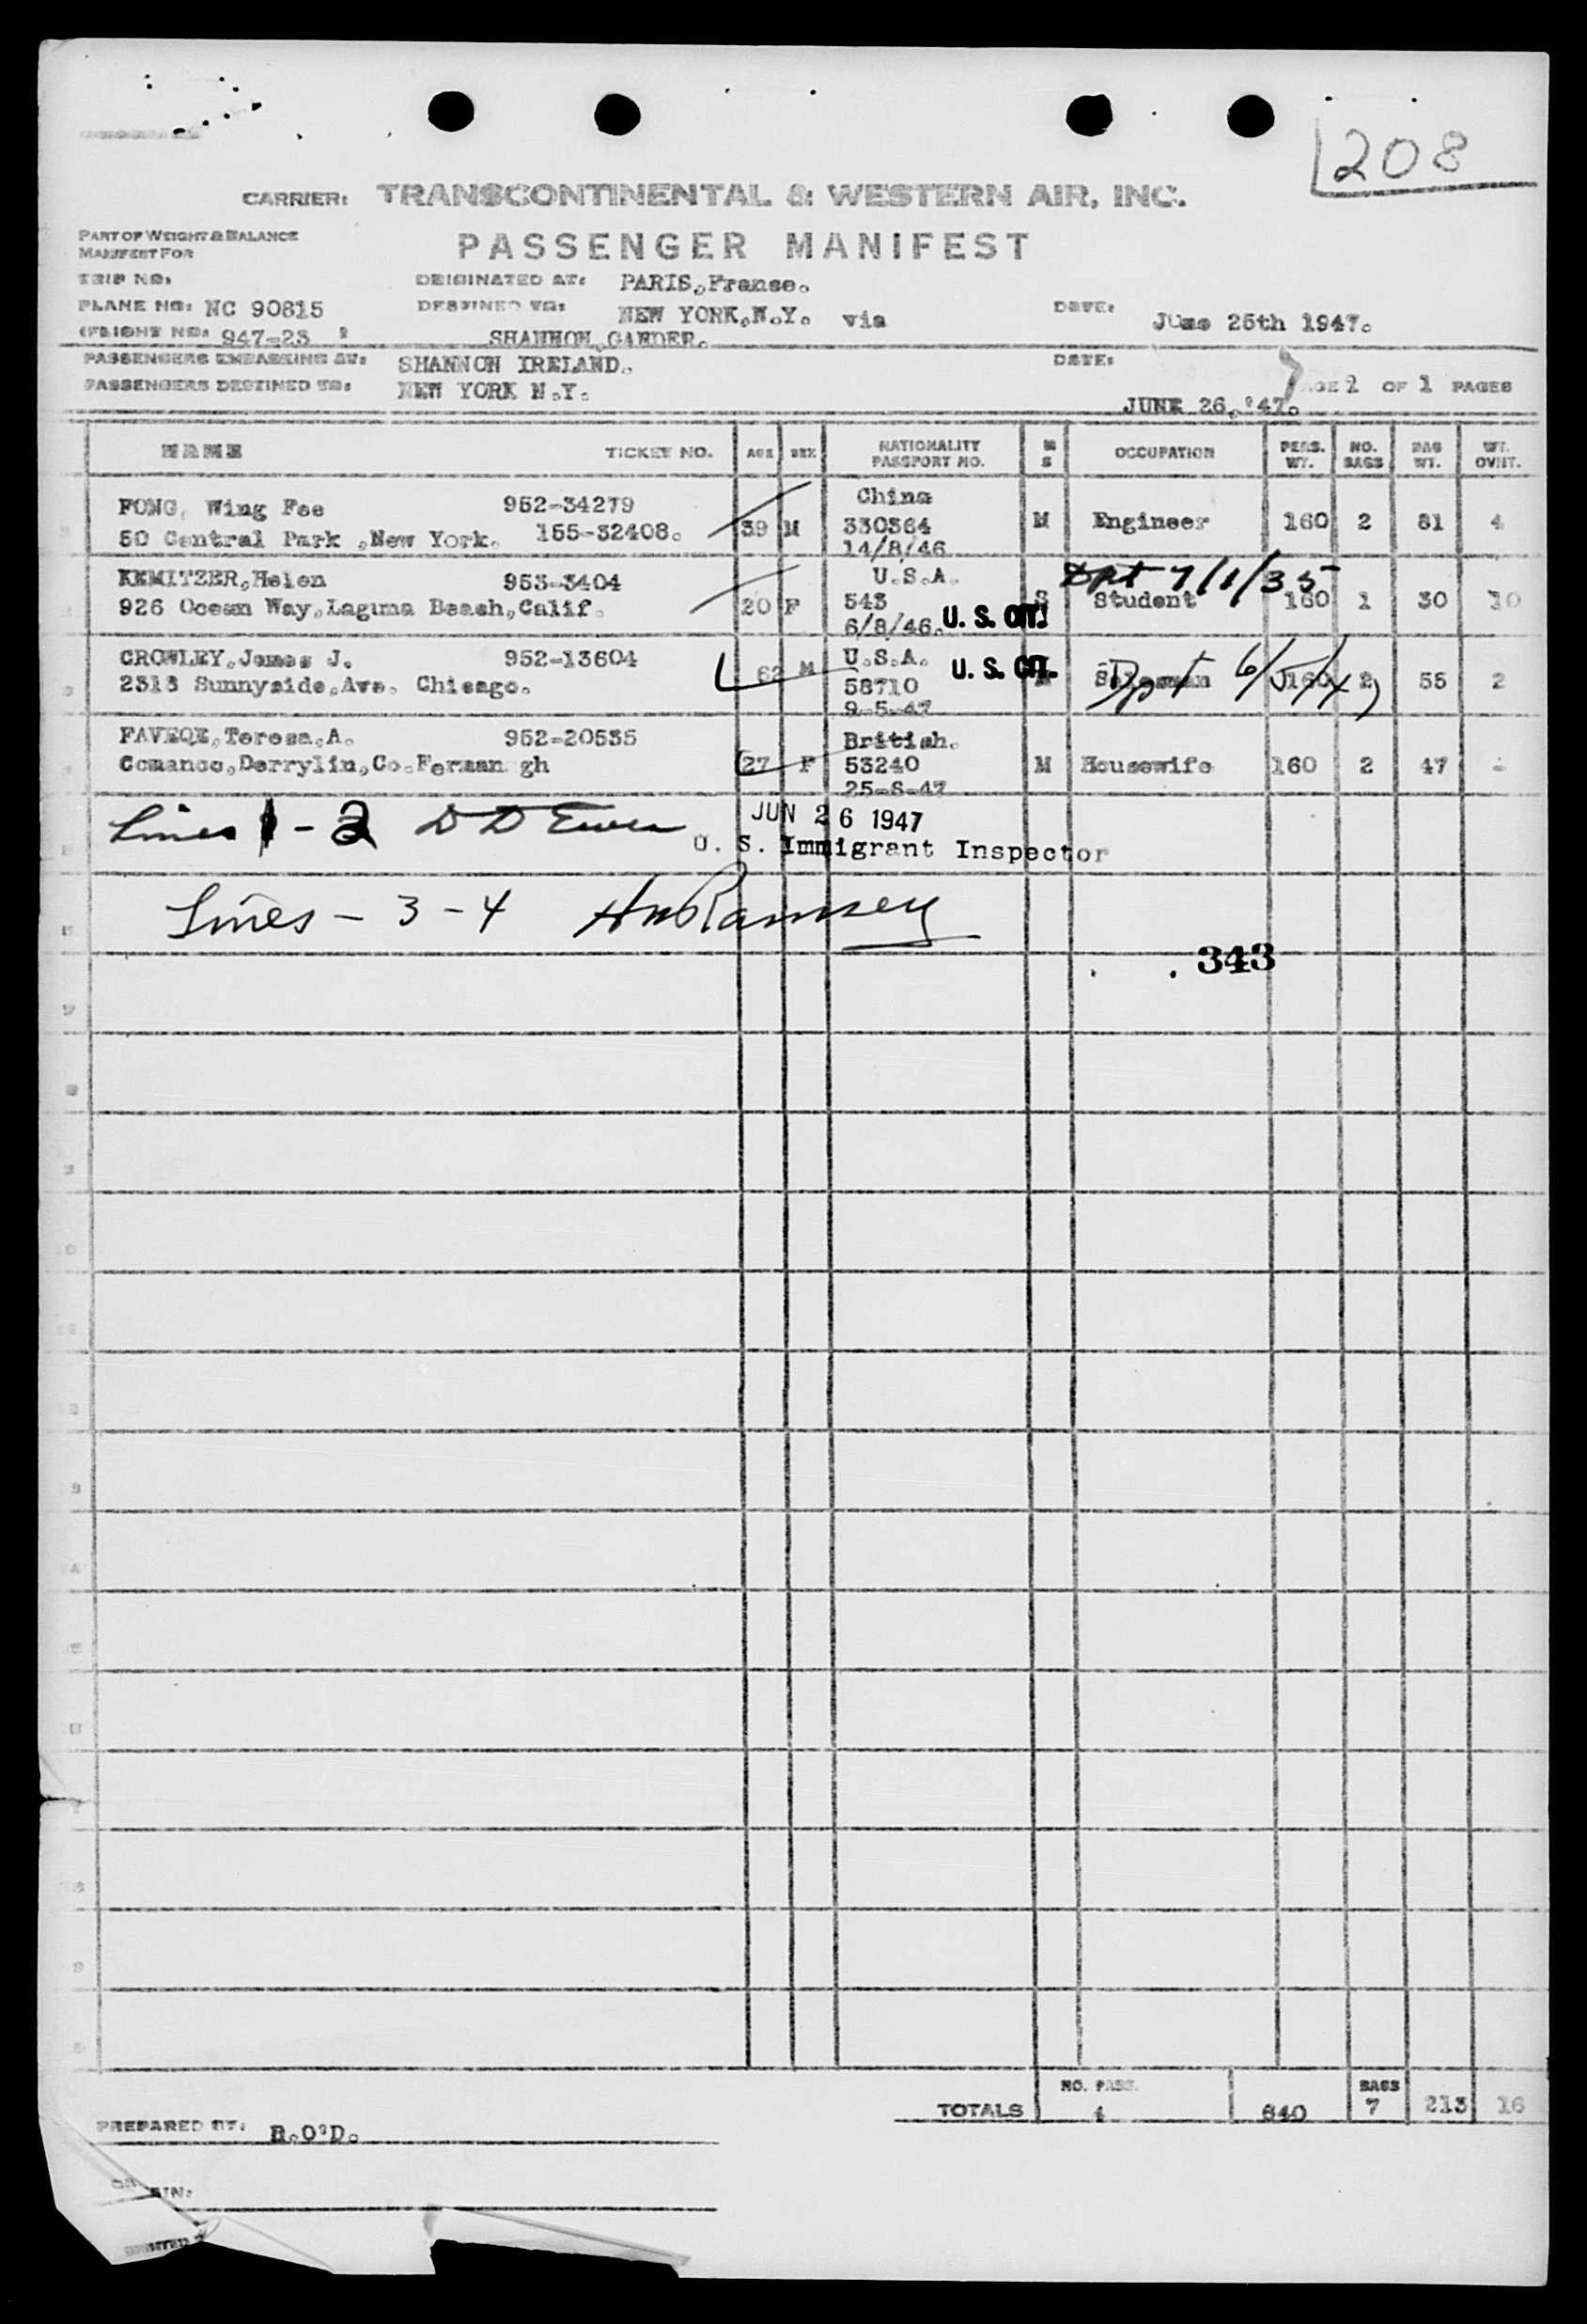 208
CARRIER: TRANSCONTINENTAL & WESTERN AIR, INC.
PART OF WEIGHT & BALANCE
MANIFEST FOR
PASSENGER MANIFEST
TRIP NO:
ORIGINATED AT: PARIS,Franse.
PLANE NO: NC 90815
DESTINED TO: NEW YORK,N.Y. via
DATE: June 25th 1947.
FLIGHT NO: 947-23
SHANNON,GANDER.
PASSENGERS EMBARKING AT: SHANNON IRELAND.
DATE:
PASSENGERS DESTINED TO: NEW YORK N.Y.
JUNE 26,'47.
PAGE 1 OF 1 PAGES
NAME TICKET NO. AGE SEX NATIONALITY PASSPORT NO. M S OCCUPATION PERS. WT. NO. BAGS BAG WT. WT. OVHT.
FONG, Wing Fee 952-34279 China
50 Central Park ,New York. 155-32408. 39 M 330364 M Engineer 160 2 81 4
14/8/46
KEMITZER,Helen 953-3404 U.S.A. Dpt 7/1/35
926 Ocean Way,Laguna Beach,Calif. 20 F 543 S Student 160 1 30 10
6/8/46. U. S. CIT.
CROWLEY,James J. 952-13604 U.S.A. U. S. CIT.
2313 Sunnyside,Ave. Chicago. 62 M 58710 Salesman 160 2 55 2
Dpt 6/5/47
9-5-47
FAVEQE,Teresa,A. 952-20535 British.
Comanoo,Derrylin,Co.Ferman gh 27 F 53240 M Housewife 160 2 47
25-6-47
Lines 1 - 2 D D Ewen
JUN 26 1947
U. S. Immigrant Inspector
Lines - 3 - 4 Ramsey
343
NO. PASS. BAGS
TOTALS 4 640 7 213 16
PREPARED BY: R.O'D.